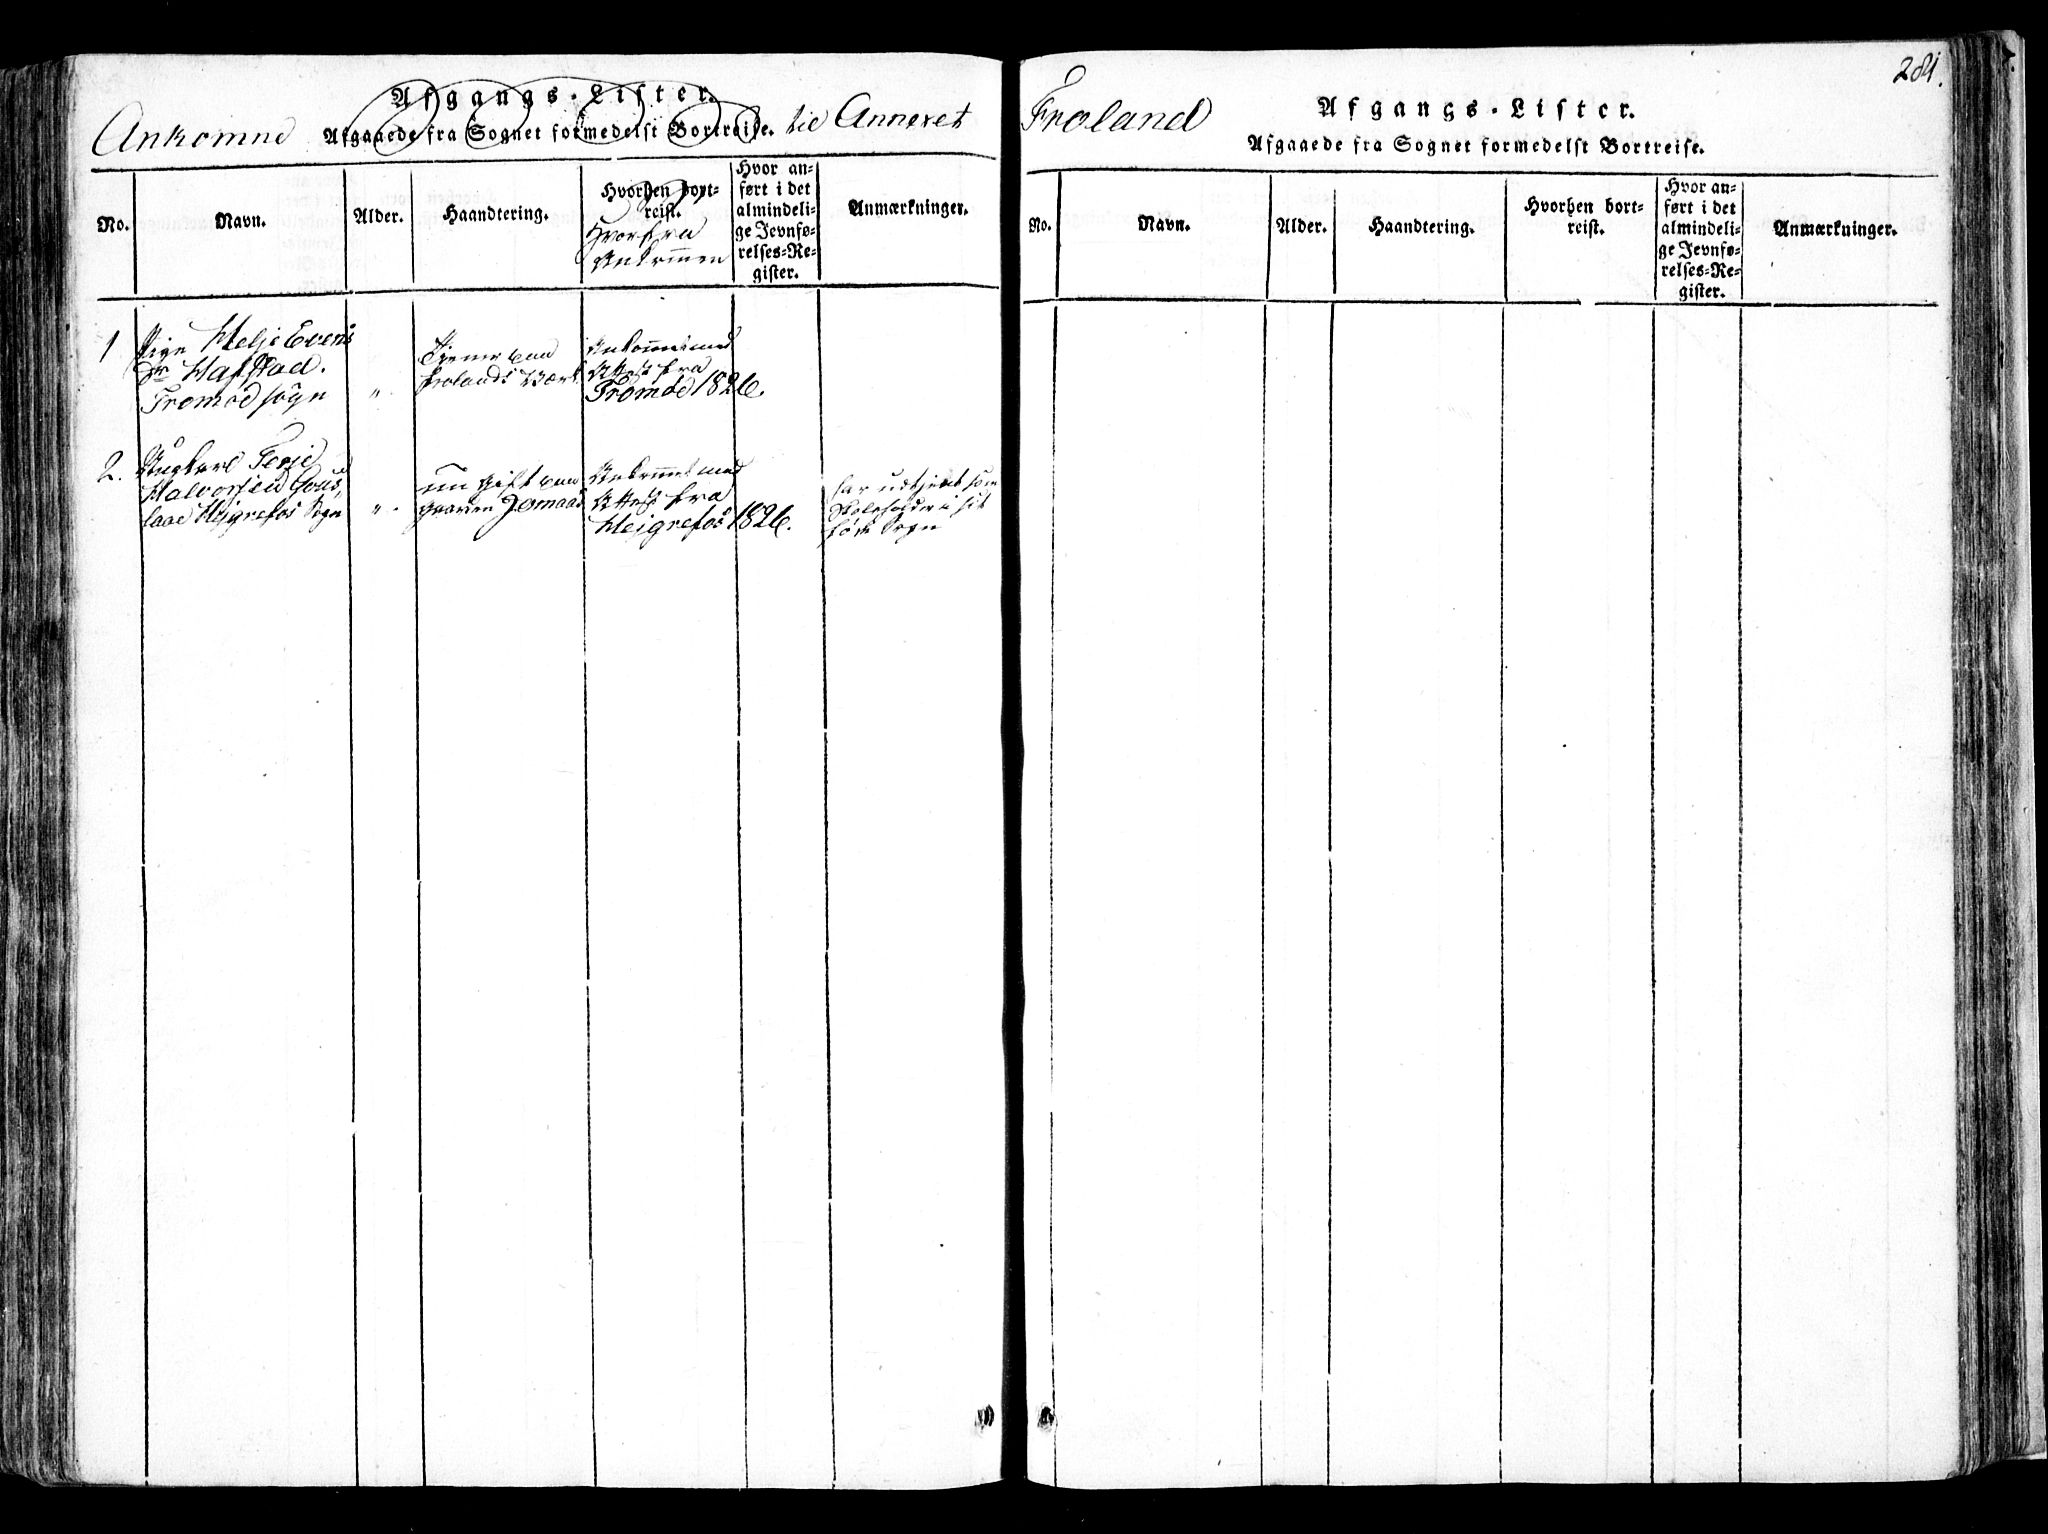 Afgangs-Lister.
Ankomne Afgaaede fra Sognet formedelst Bortreise. til Annexet
No.
Navn.
Alder.
Haandtering.
Hvorhen bort-
reist.
Hvorfra
Ankommen
Hvor an-
ført i det
almindeli-
ge Jevnfø-
relses-Re-
gister.
Anmærkninger.
1
Pige Helje Evens
Dr Hafstad.
Tromøe sogn
"
Tjener paa
Frolands Værk
Ankommet med
Attest fra
Tromøe 1826.
2.
Ungkarl Terje
Halvorsen
Hejgrefos Sogn
"
gift paa
Gaarden Jomaas
Ankommet med
Attest fra
Hejgrefos 1826.
har udtjent som
Skoleholder i sit
føde Sogn
281.
Froland
Afgangs-Lister.
Afgaaede fra Sognet formedelst Bortreise.
No.
Navn.
Alder.
Haandtering.
Hvorhen bort-
reist.
Hvor an-
ført i det
almindeli-
ge Jevnfø-
relses-Re-
gister.
Anmærkninger.